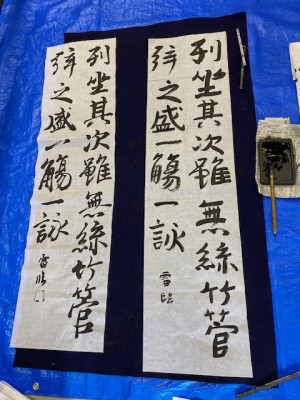 列坐其次雖無絲竹管
弦之盛一觴一詠
臨
列坐其次雖無絲竹管
弦之盛一觴一詠
臨